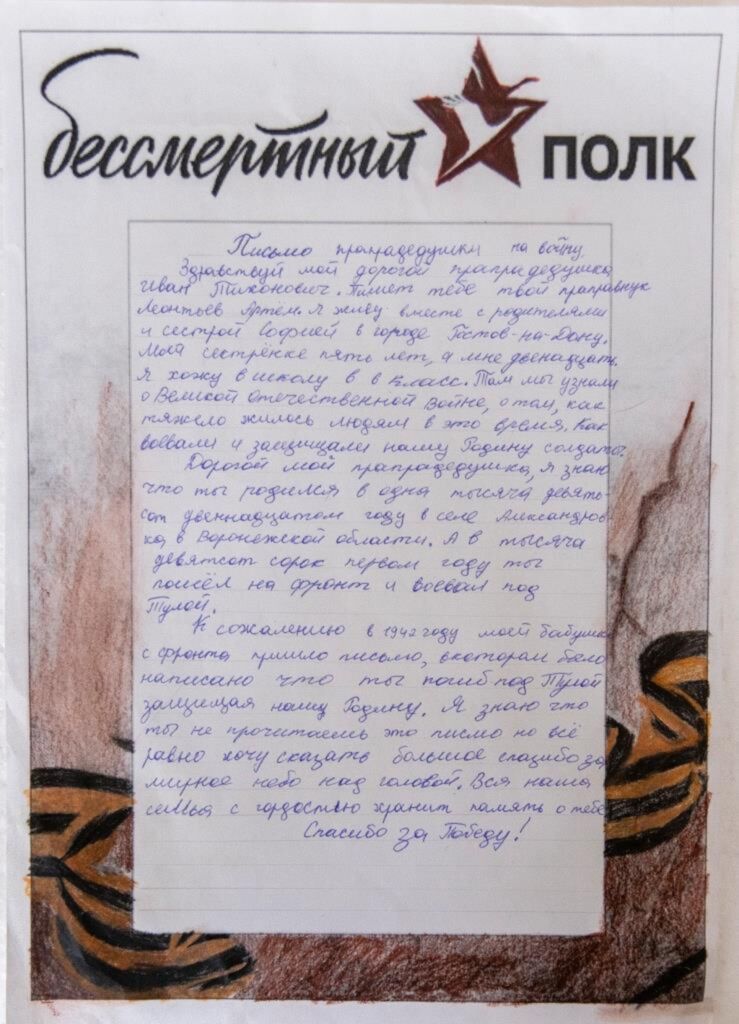 бессмертный полк
Письмо прапрадедушки на войну
Здравствуй мой дорогой прапрадедушка
Иван Тихонович. Пишет тебе твой праправнук
Леонтьев Артём. Я живу вместе с родителями
и сестрой Софией в городе Ростов-на-Дону.
Моей сестрёнке пять лет, а мне двенадцать.
Я хожу в школу в 6 класс. Там мы узнали
о Великой Отечественной Войне, о том, как
тяжело жилось людям в это время. Как
воевали и защищали нашу Родину солдаты.
Дорогой мой прапрадедушка, я знаю
что ты родился в одна тысяча девять-
сот двеннадцатом году в селе Александров-
ка, в Воронежской области. А в тысяча
девятсот сорок первом году ты
пошёл на фронт и воевал под
Тулой.
К сожалению в 1942 году моей бабушке
с фронта пришло письмо, в котором было
написано что ты погиб под Тулой
защищая нашу Родину. Я знаю что
ты не прочитаешь это писмо но всё
равно хочу сказать большое спасибо за
мирное небо над головой. Вся наша
семья с гордостью хранит память о тебе
Спасибо за Победу!